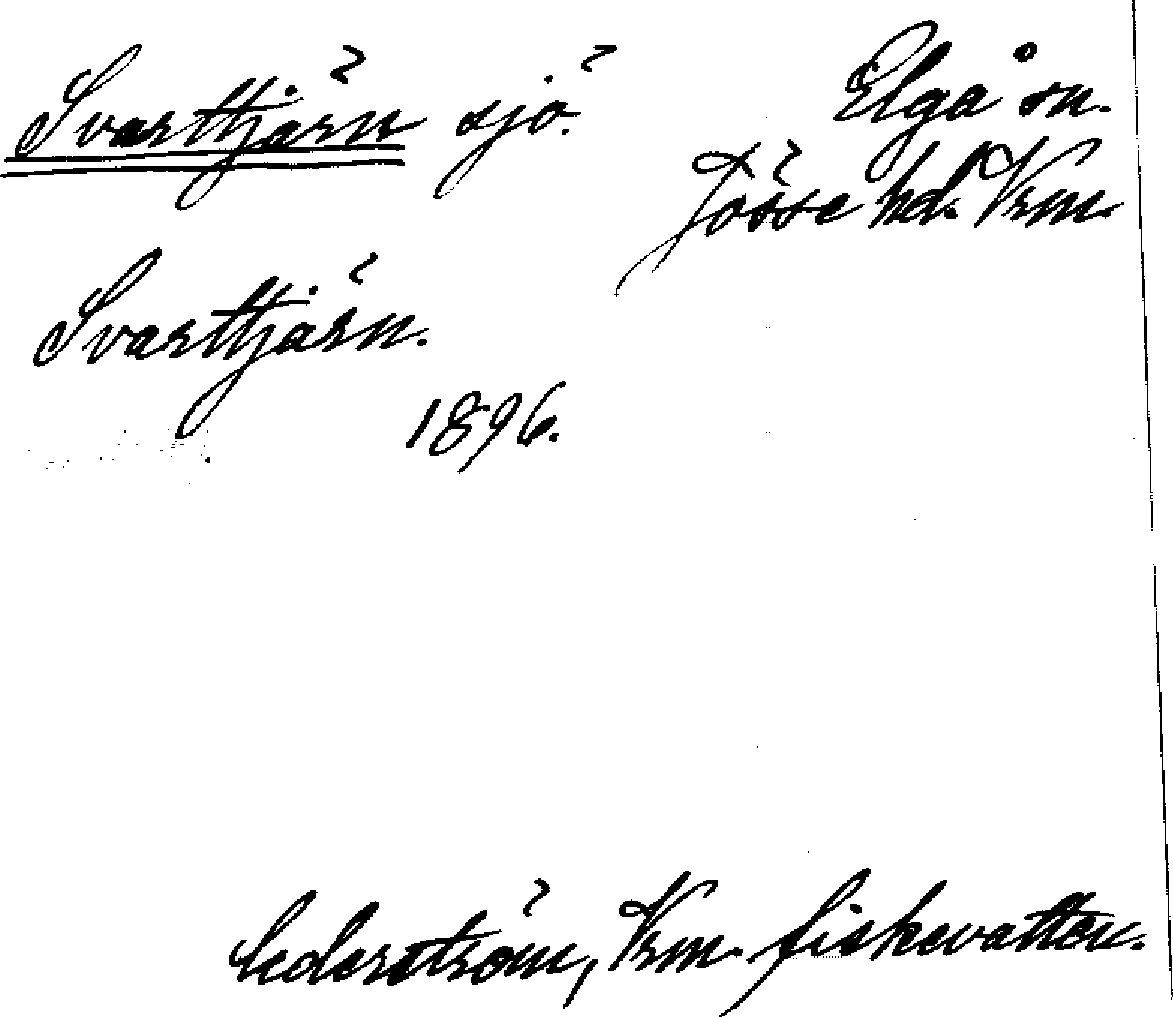 Svarttjärn sjö.
Elgå sn.
Jösse hd. Vrm.
Svarttjärn.
1896.
Cederström, Vrm. fiskevatten.